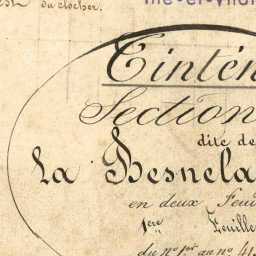 du clocher.
Ille-et-Vilai
Tintén
Section
dite de
La Besnela
en deux Feui
1ère Feuille
du n° 1er au n° 41